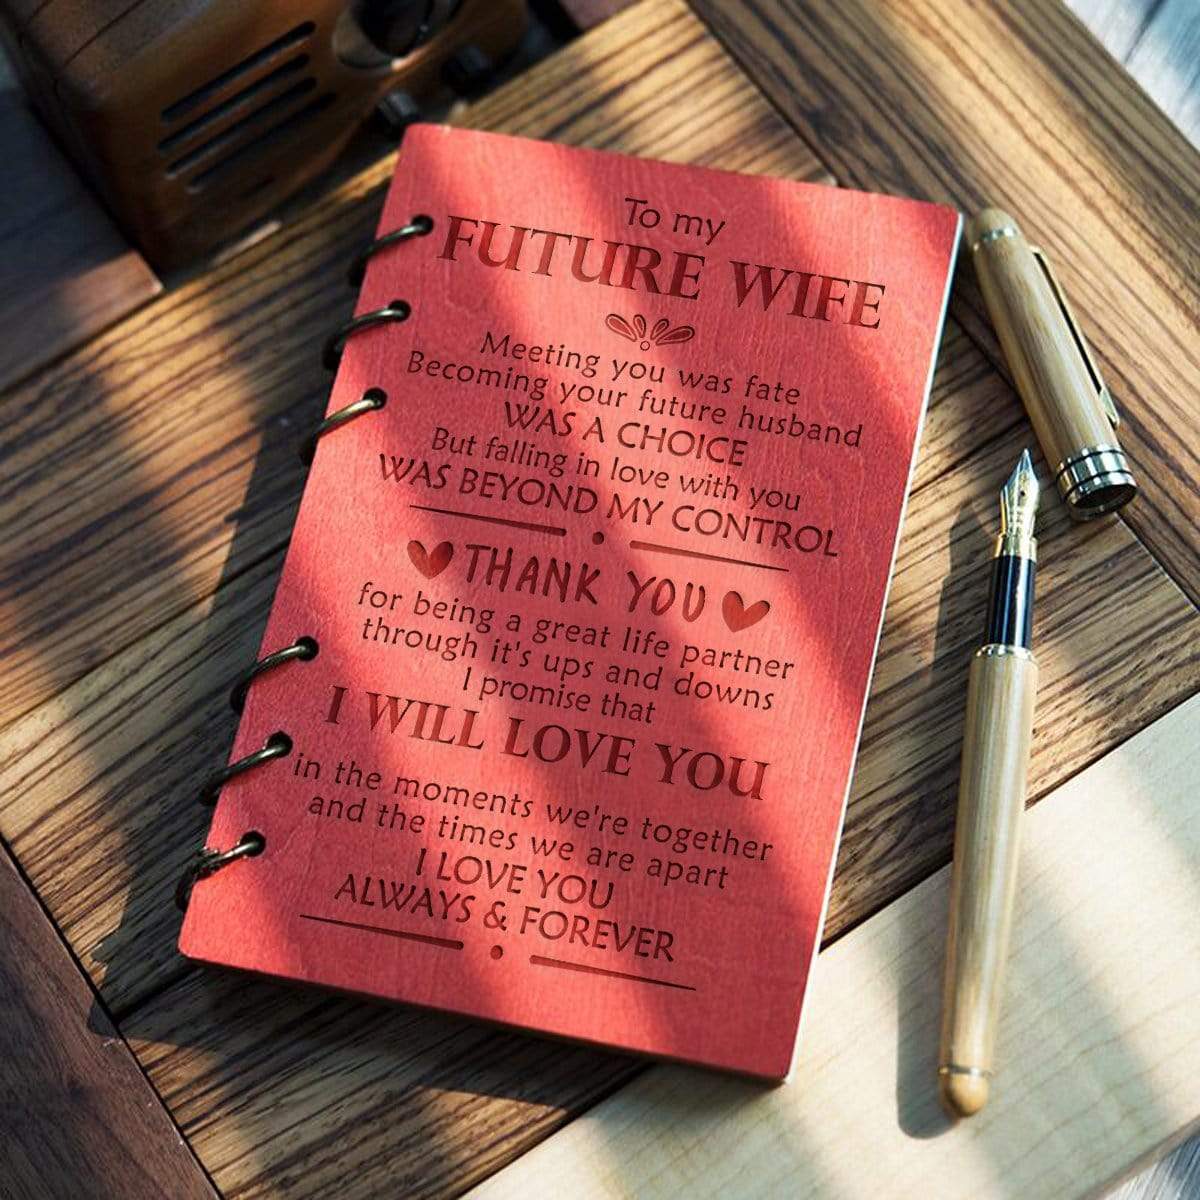 To my
FUTURE WIFE
Meeting you was fate
Becoming your future husband
WAS A CHOICE
But falling in love with you
WAS BEYOND MY CONTROL
THANK YOU
for being a great life partner
through it's ups and downs
I promise that
I WILL LOVE YOU
in the moments we're together
and the times we are apart
I LOVE YOU
ALWAYS & FOREVER